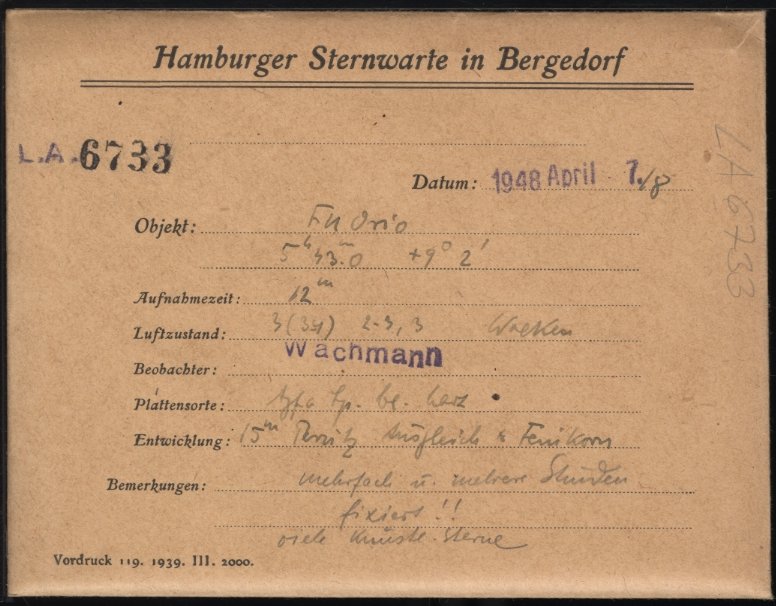 Hamburger Sternwarte in Bergedorf
L.A. 6733
Datum: 1948 April 7./8
LA 6733
Objekt: FU Orio
5h 43m.0 +9° 2'
Aufnahmezeit: 12m
Luftzustand: 3(34) 2-3, 3 Wolken
Beobachter: Wachmann
Plattensorte: Agfa Sp. bl. harz
Entwicklung: 15m Perutz Ausgleich u Feinkorn
Bemerkungen: mehrfach u. mehrere Stunden
fixiert!!
viele künstl. Sterne
Vordruck 119. 1939. III. 2000.